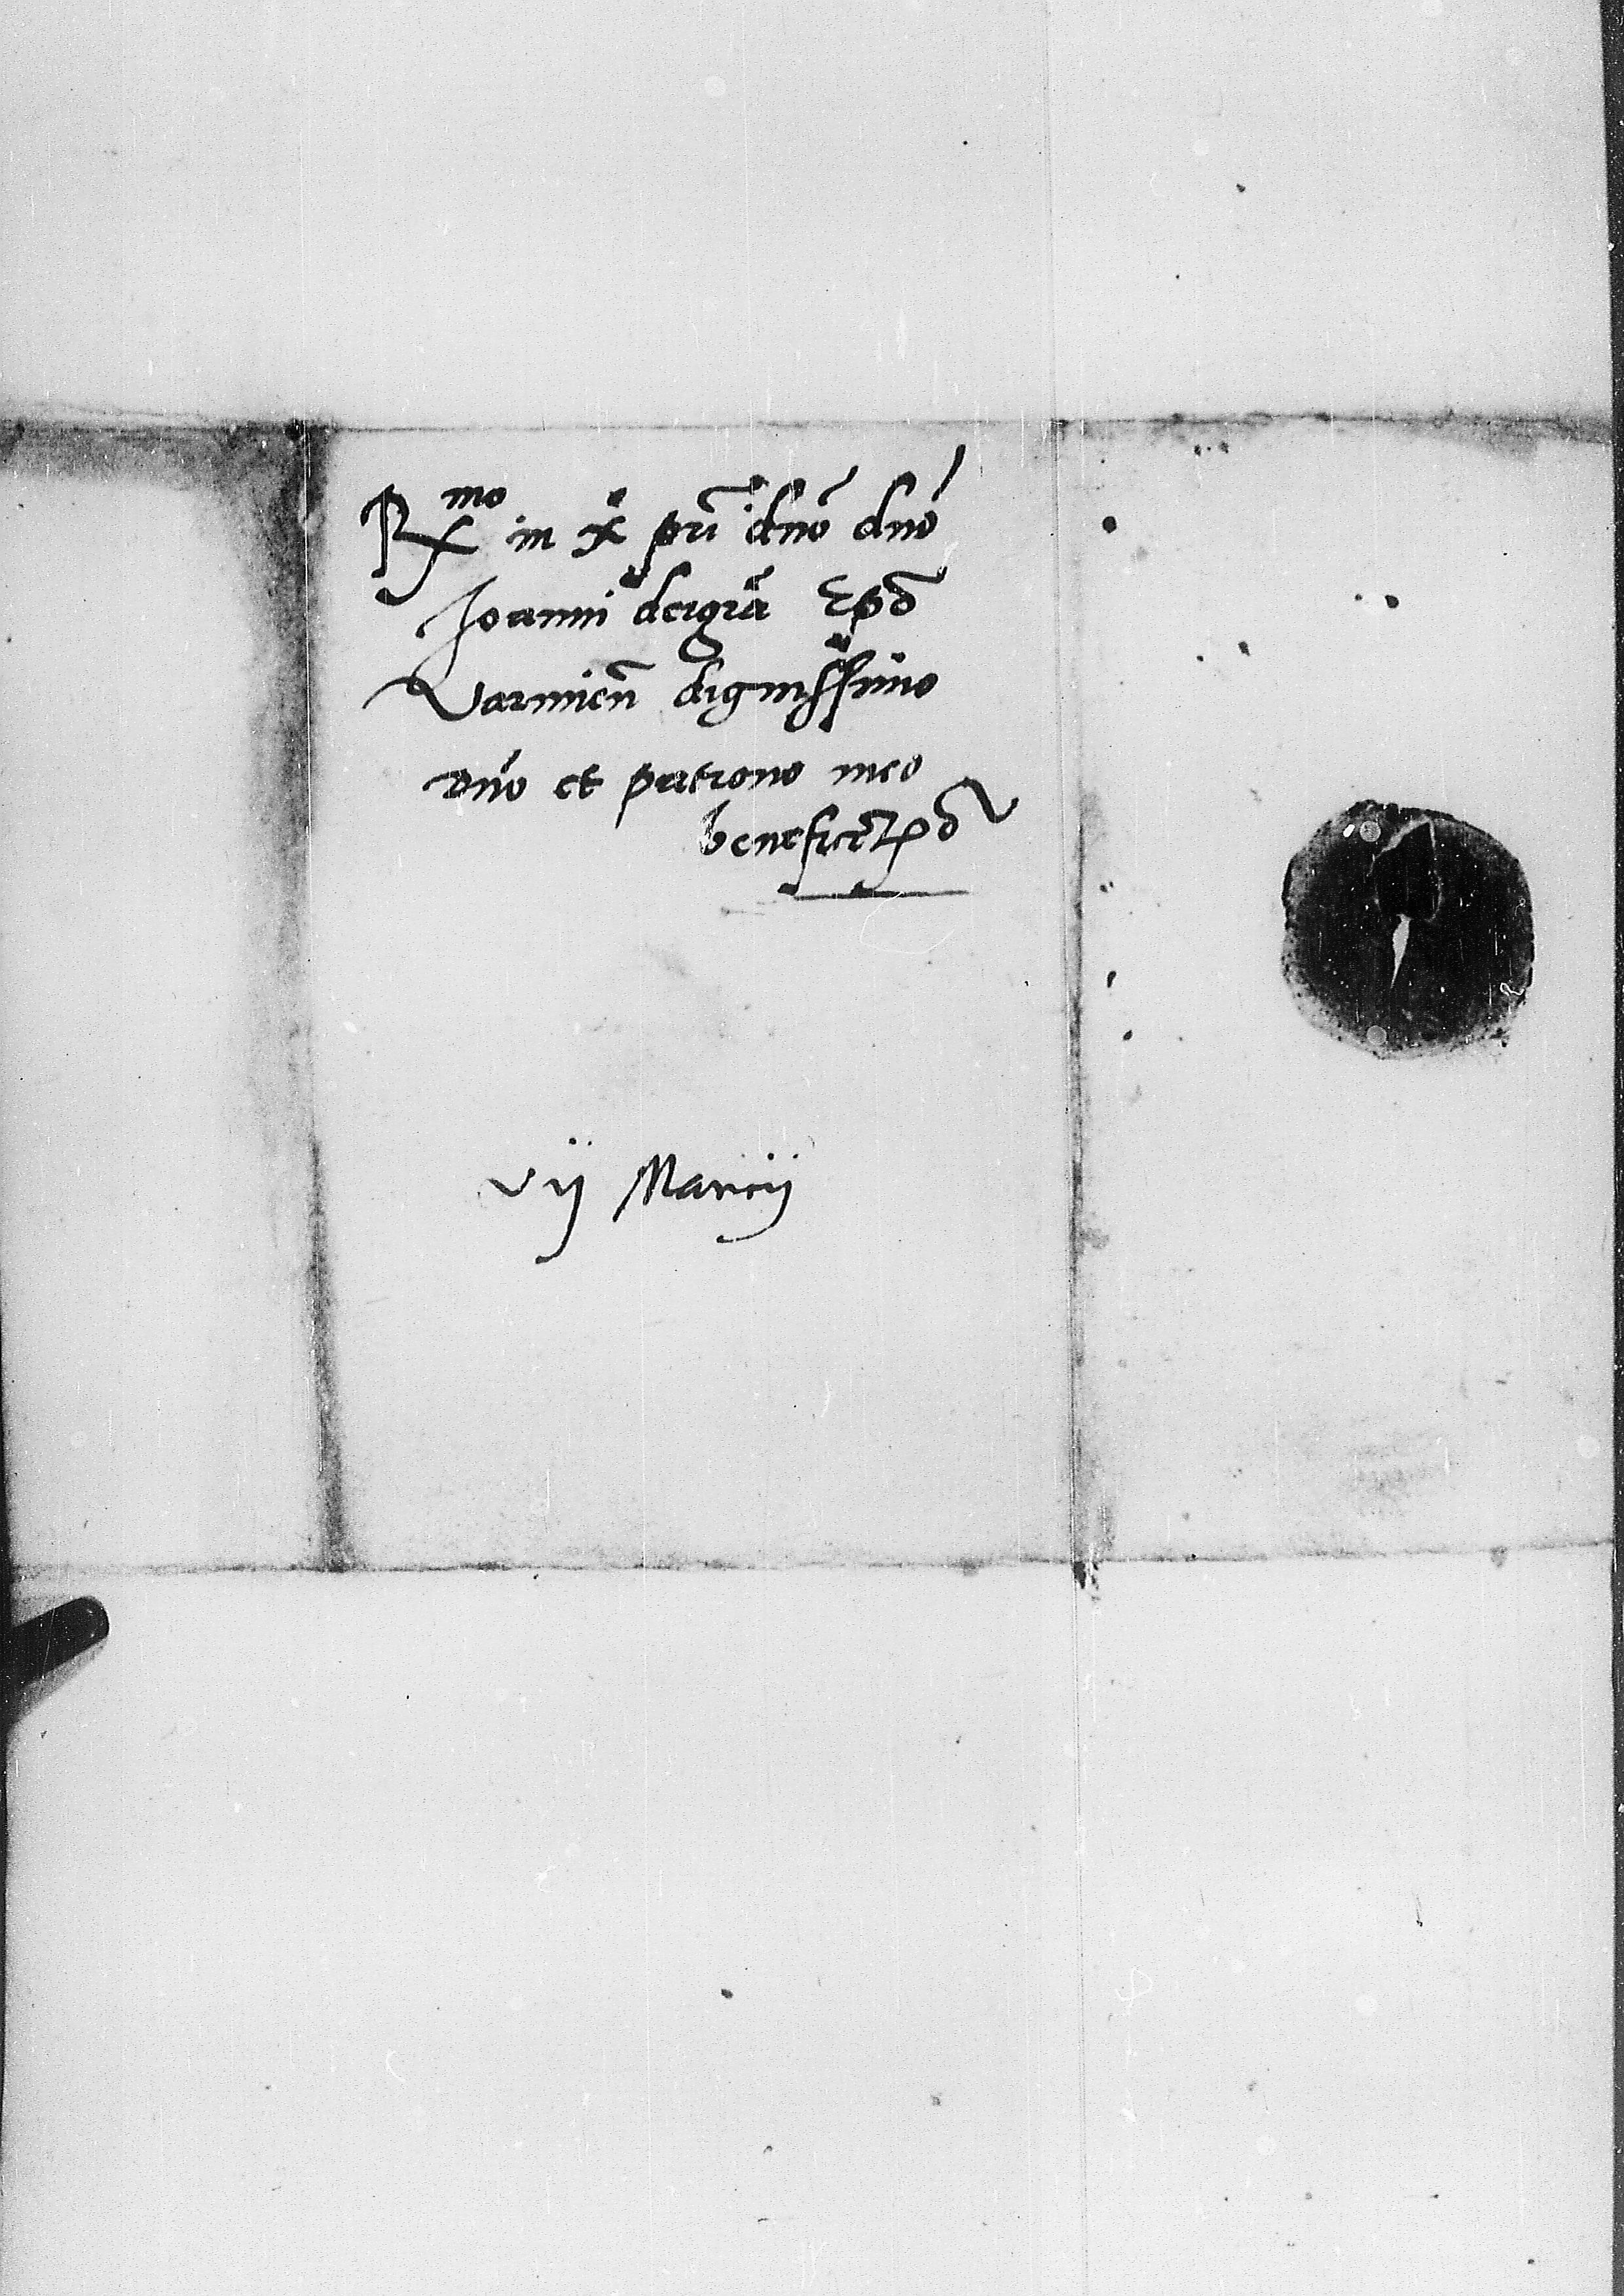 R^mo in χ̃ pri dno dno
Joanni dei gra Epo
Varmien dignissimo
Dno et patrono meo
vij Marcij